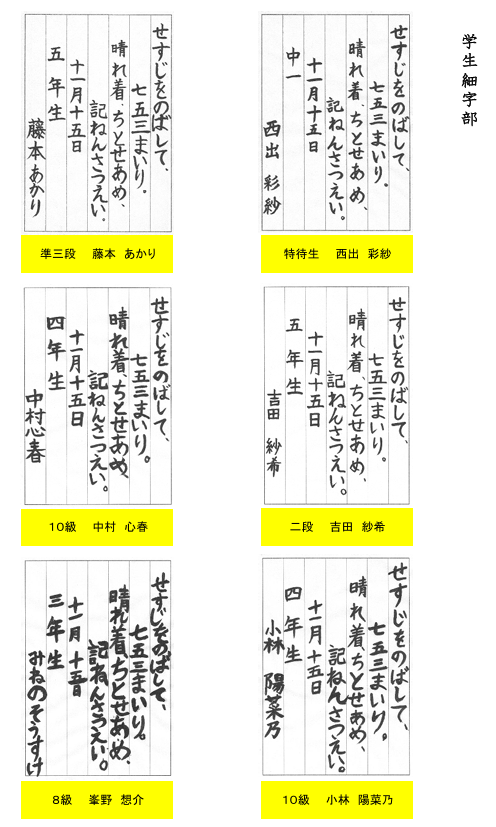 学生細字部
せすじをのばして、
七五三まいり。
晴れ着、ちとせあめ、
記ねんさつえい。
十一月十五日
中一
西出 彩紗
特待生 西出 彩紗
せすじをのばして、
七五三まいり。
晴れ着、ちとせあめ、
記ねんさつえい。
十一月十五日
五年生
藤本あかり
準三段 藤本 あかり
せすじをのばして、
七五三まいり。
晴れ着、ちとせあめ、
記ねんさつえい。
十一月十五日
五年生
吉田 紗希
二段 吉田 紗希
せすじをのばして、
七五三まいり。
晴れ着、ちとせあめ、
記ねんさつえい。
十一月十五日
四年生
中村心春
10級 中村 心春
せすじをのばして、
七五三まいり。
晴れ着、ちとせあめ、
記ねんさつえい。
十一月十五日
四年生
小林 陽菜乃
10級 小林 陽菜乃
せすじをのばして、
七五三まいり。
晴れ着、ちとせあめ、
記ねんさつえい。
十一月十五日
三年生
みねのそうすけ
8級 峯野 想介